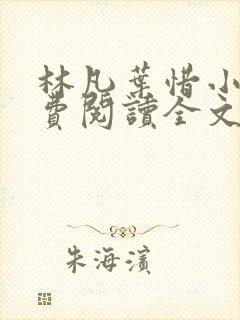 林凡葉惜小
費閱讀全文
朱海濱